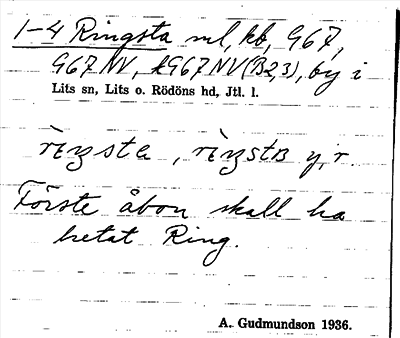 1-4 Ringsta ml, kb, G67,
G67 NV, kG67 NV (B2,3), by i
Lits sn, Lits o. Rödöns hd, Jtl. l.
rìŋsta, rìŋstɐ y, r.
Förste åbon skall ha
hetat Ring.
A. Gudmundson 1936.